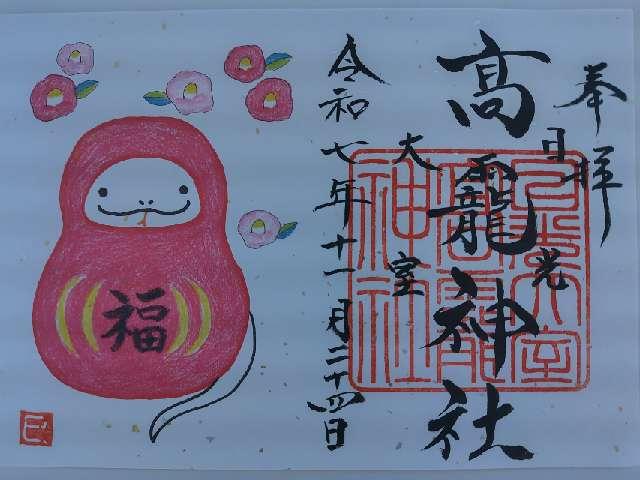 奉拝
日光
大室
高龗神社
令和七年十一月二十四日
福
巳